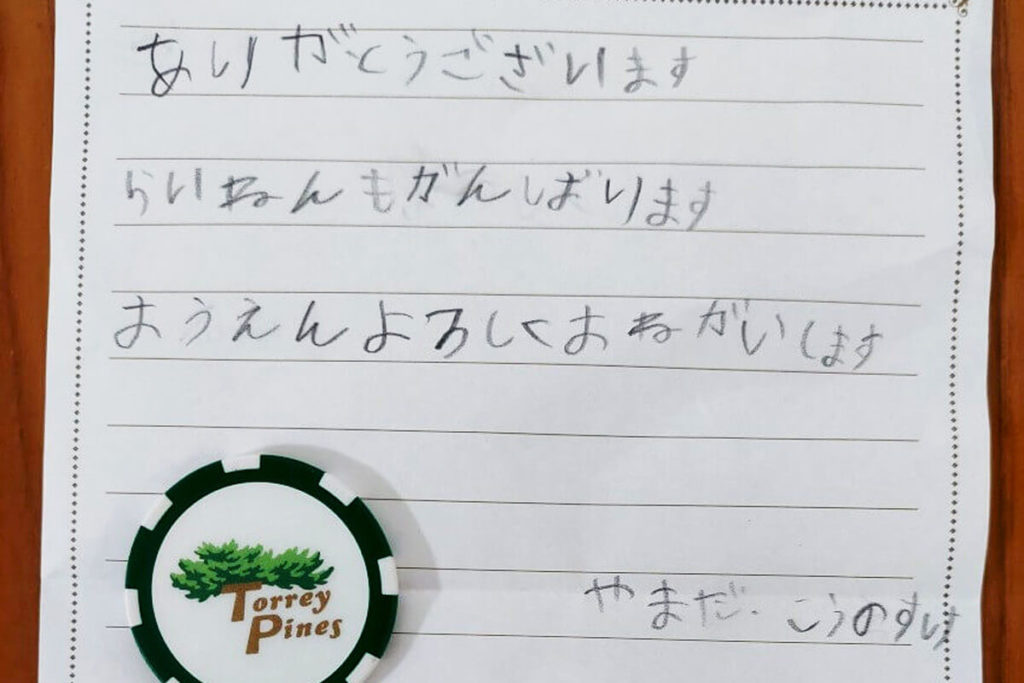 ありがとうございます
らいねんもがんばります
おうえんよろしくおねがいします
Torrey
Pines
やまだ. こうのすけ